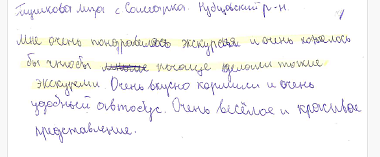 Пушкова Лиза с Саморка. Кубцовский р-н.
Мне очень понравилась экскурсия и очень хотелось
бы чтобы почаще делали такие
экскурсии. Очень вкусно кормили и очень
удобный автобус. Очень весёлое и красивое
представление.